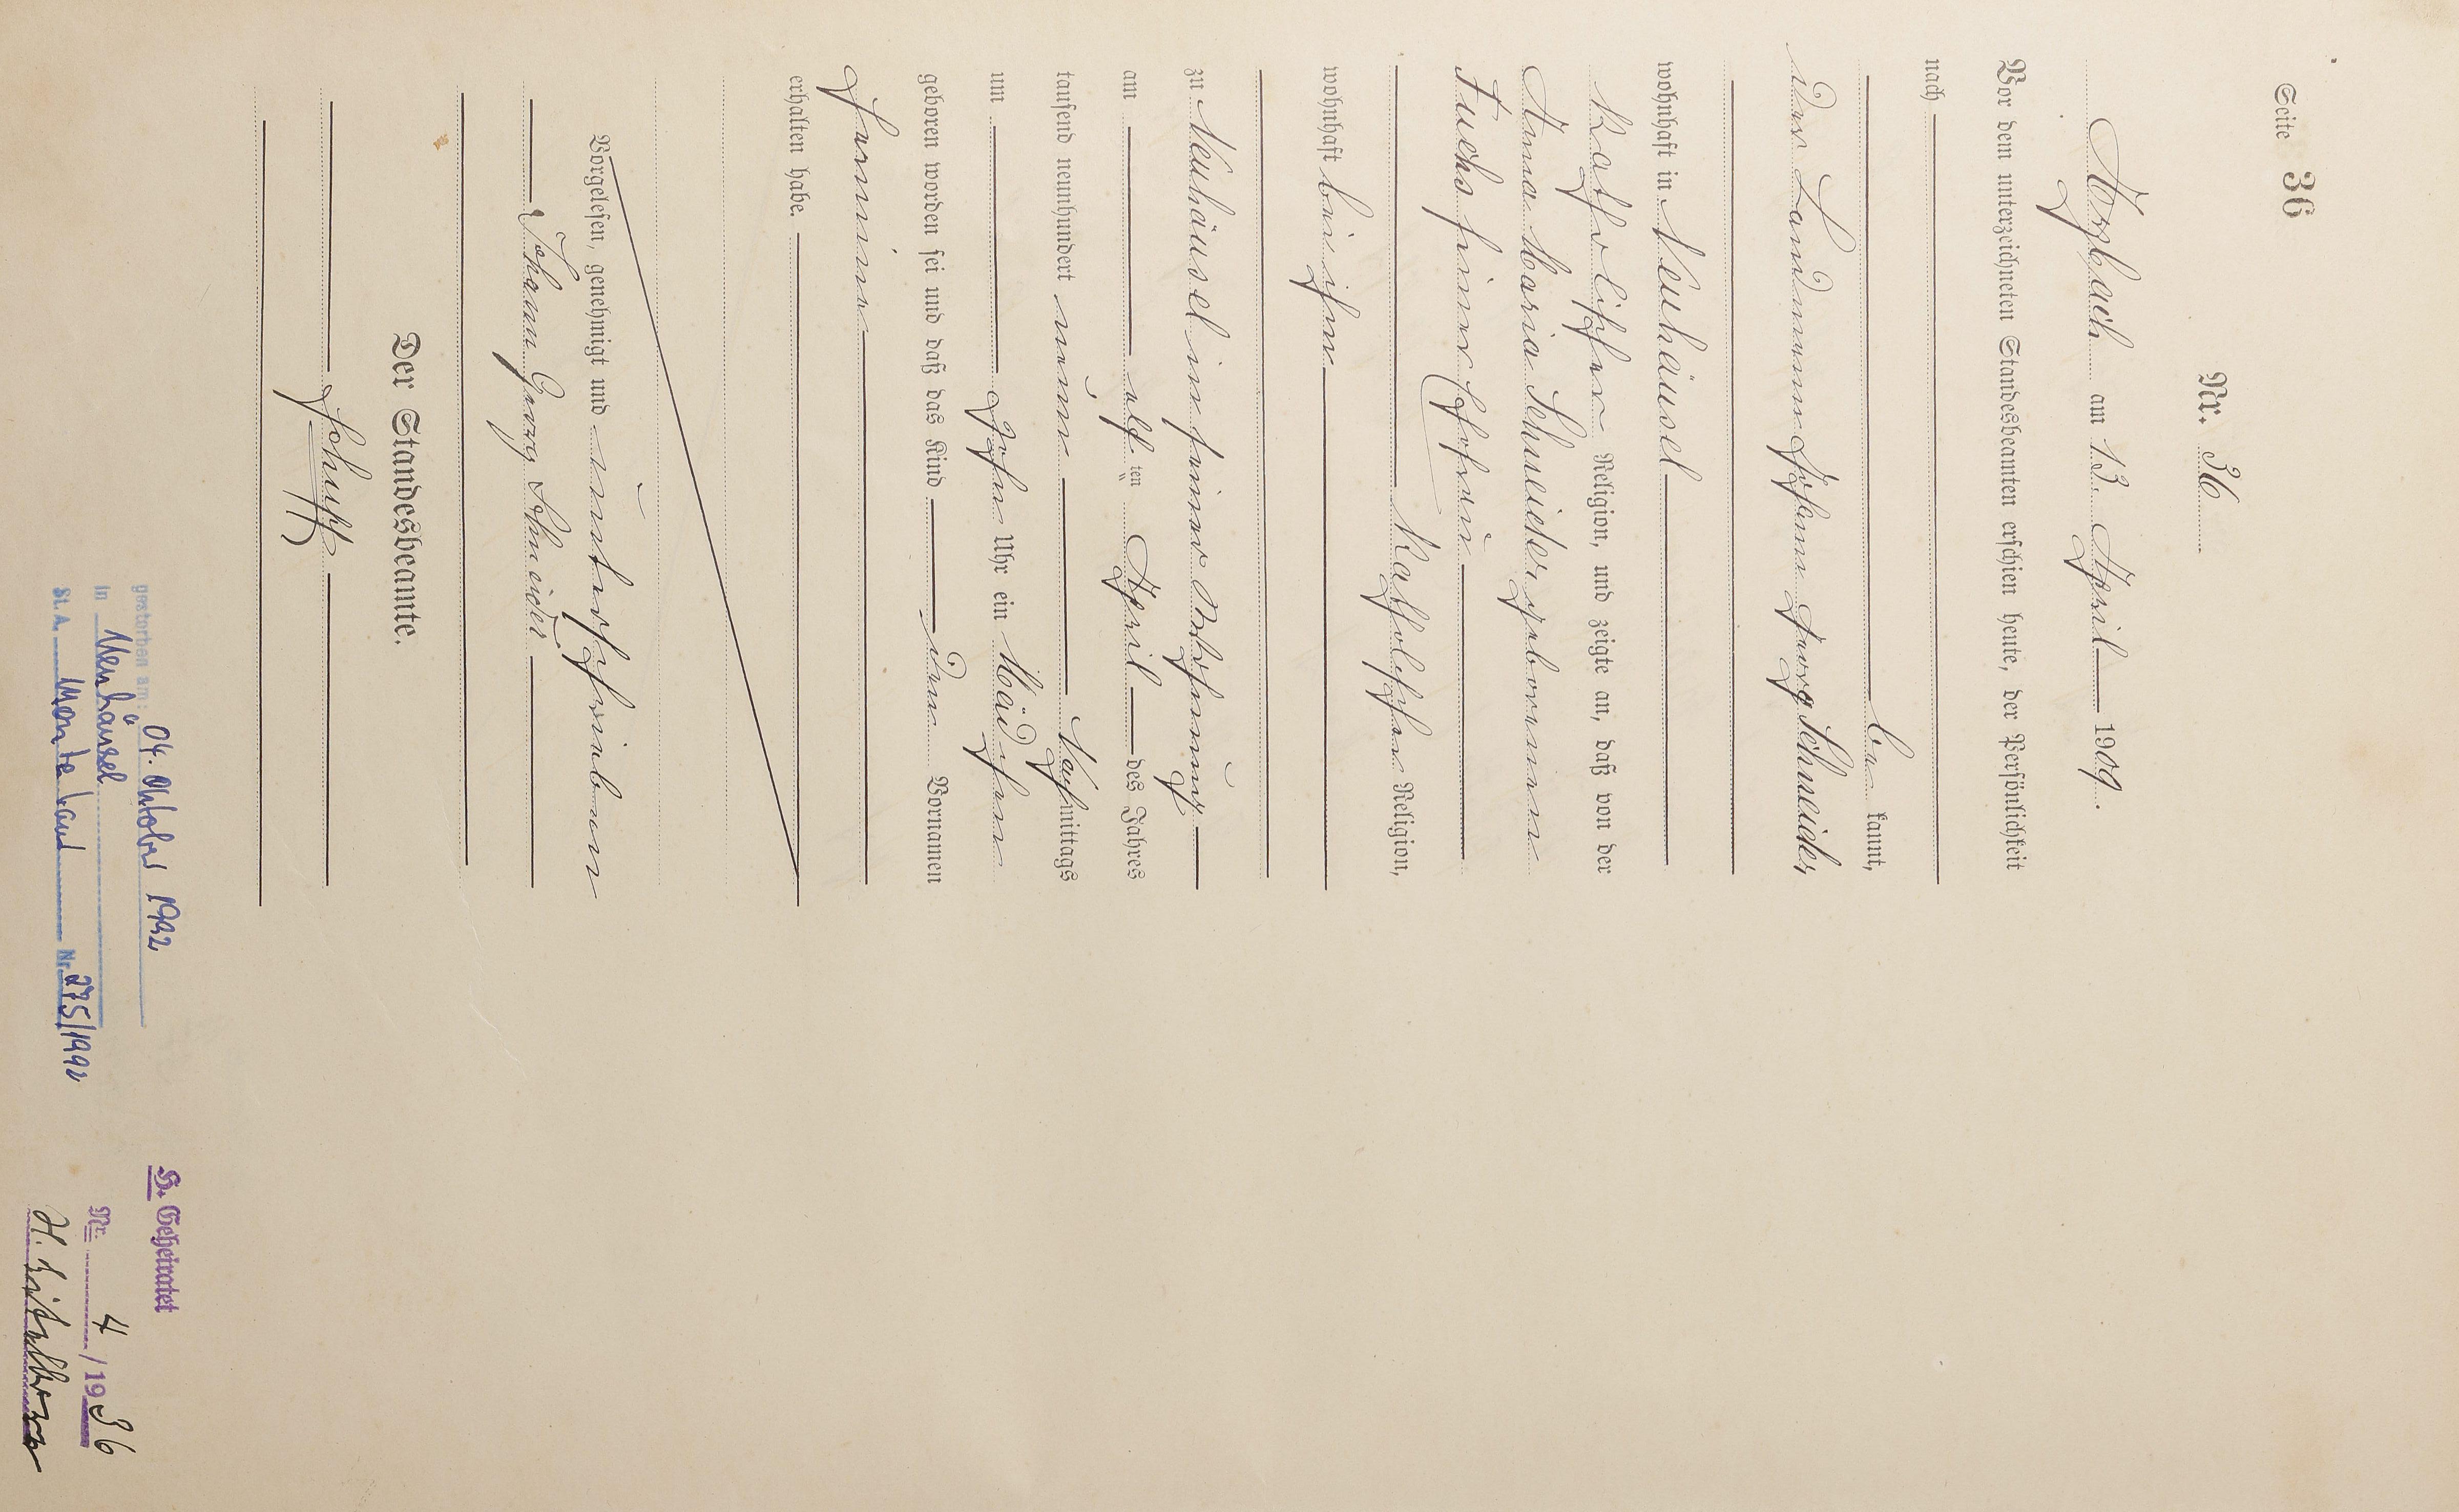 Seite 36
Nr. 36
Arzbach am 13. April 1909.
Vor dem unterzeichneten Standesbeamten erschien heute, der Persönlichkeit
nach
be kannt,
der Landmann Johann Georg Schneider,
wohnhaft in Neuhäusel
katholischer Religion, und zeigte an, daß von der
Anna Maria Schneider geborenen
Fuchs seiner Ehefrau
katholischer Religion,
wohnhaft bei ihm
zu Neuhäusel in seiner Wohnung
am elf ten April des Jahres
tausend neunhundert neun Nachmittags
um zehn Uhr ein Mädchen
geboren worden sei und daß das Kind den Vornamen
erhalten habe.
Vorgelesen, genehmigt und unterschrieben
Johann Georg Schneider
Der Standesbeamte.
gestorben am: 04. Oktober 1992
in Neuhäusel
St. A. Montabaur Nr. 275/1992
H. Geheiratet
Nr. 4/1936